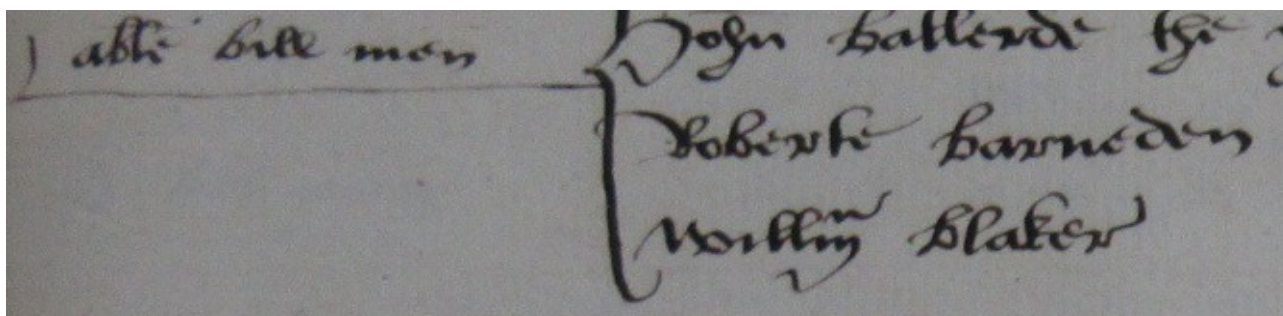 able bill men
John Ballerde the
Roberte Barneden
Willm Blaker